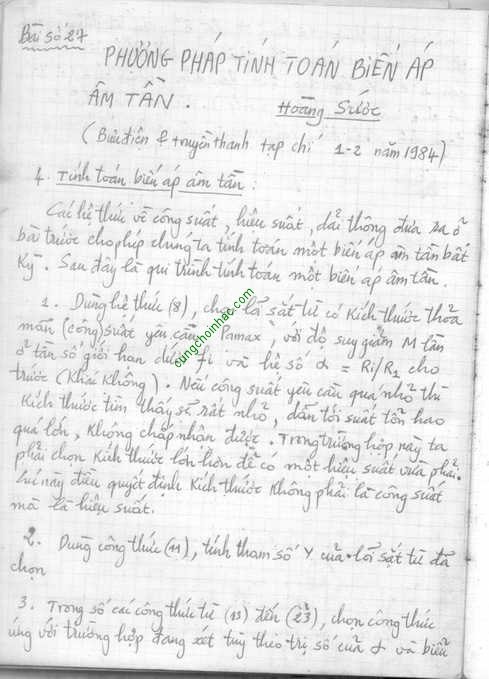 Bài số 27
PHƯƠNG PHÁP TÍNH TOÁN BIẾN ÁP
ÂM TẦN. Hoàng Sước
(Bưu điện & truyền thanh tạp chí 1-2 năm 1984)
4. Tính toán biến áp âm tần:
Các hệ thức về công suất, hiệu suất, dải thông đưa ra ở
bài trước cho phép chúng ta tính toán một biến áp âm tần bất
kỳ. Sau đây là qui trình tính toán một biến áp âm tần.
1. Dùng hệ thức (8), chọn lõi sắt từ có kích thước thỏa
mãn (công) suất yêu cầu Pamax, với độ suy giảm M lần
ở tần số giới hạn dưới ft và hệ số α = Ri/R1 cho
trước (khái không). Nếu công suất yêu cầu quá nhỏ thì
kích thước tìm thấy sẽ rất nhỏ, dẫn tới suất tổn hao
quá lớn, không chấp nhận được. Trong trường hợp này ta
phải chọn kích thước lớn hơn để có một hiệu suất vừa phải.
Lúc này điều quyết định kích thước không phải là công suất
mà là hiệu suất.
2. Dùng công thức (11), tính tham số Y của lõi sắt từ đã
chọn
3. Trong số các công thức từ (13) đến (23), chọn công thức
ứng với trường hợp đang xét tùy theo trị số của α và biểu
cungchoinhac.com